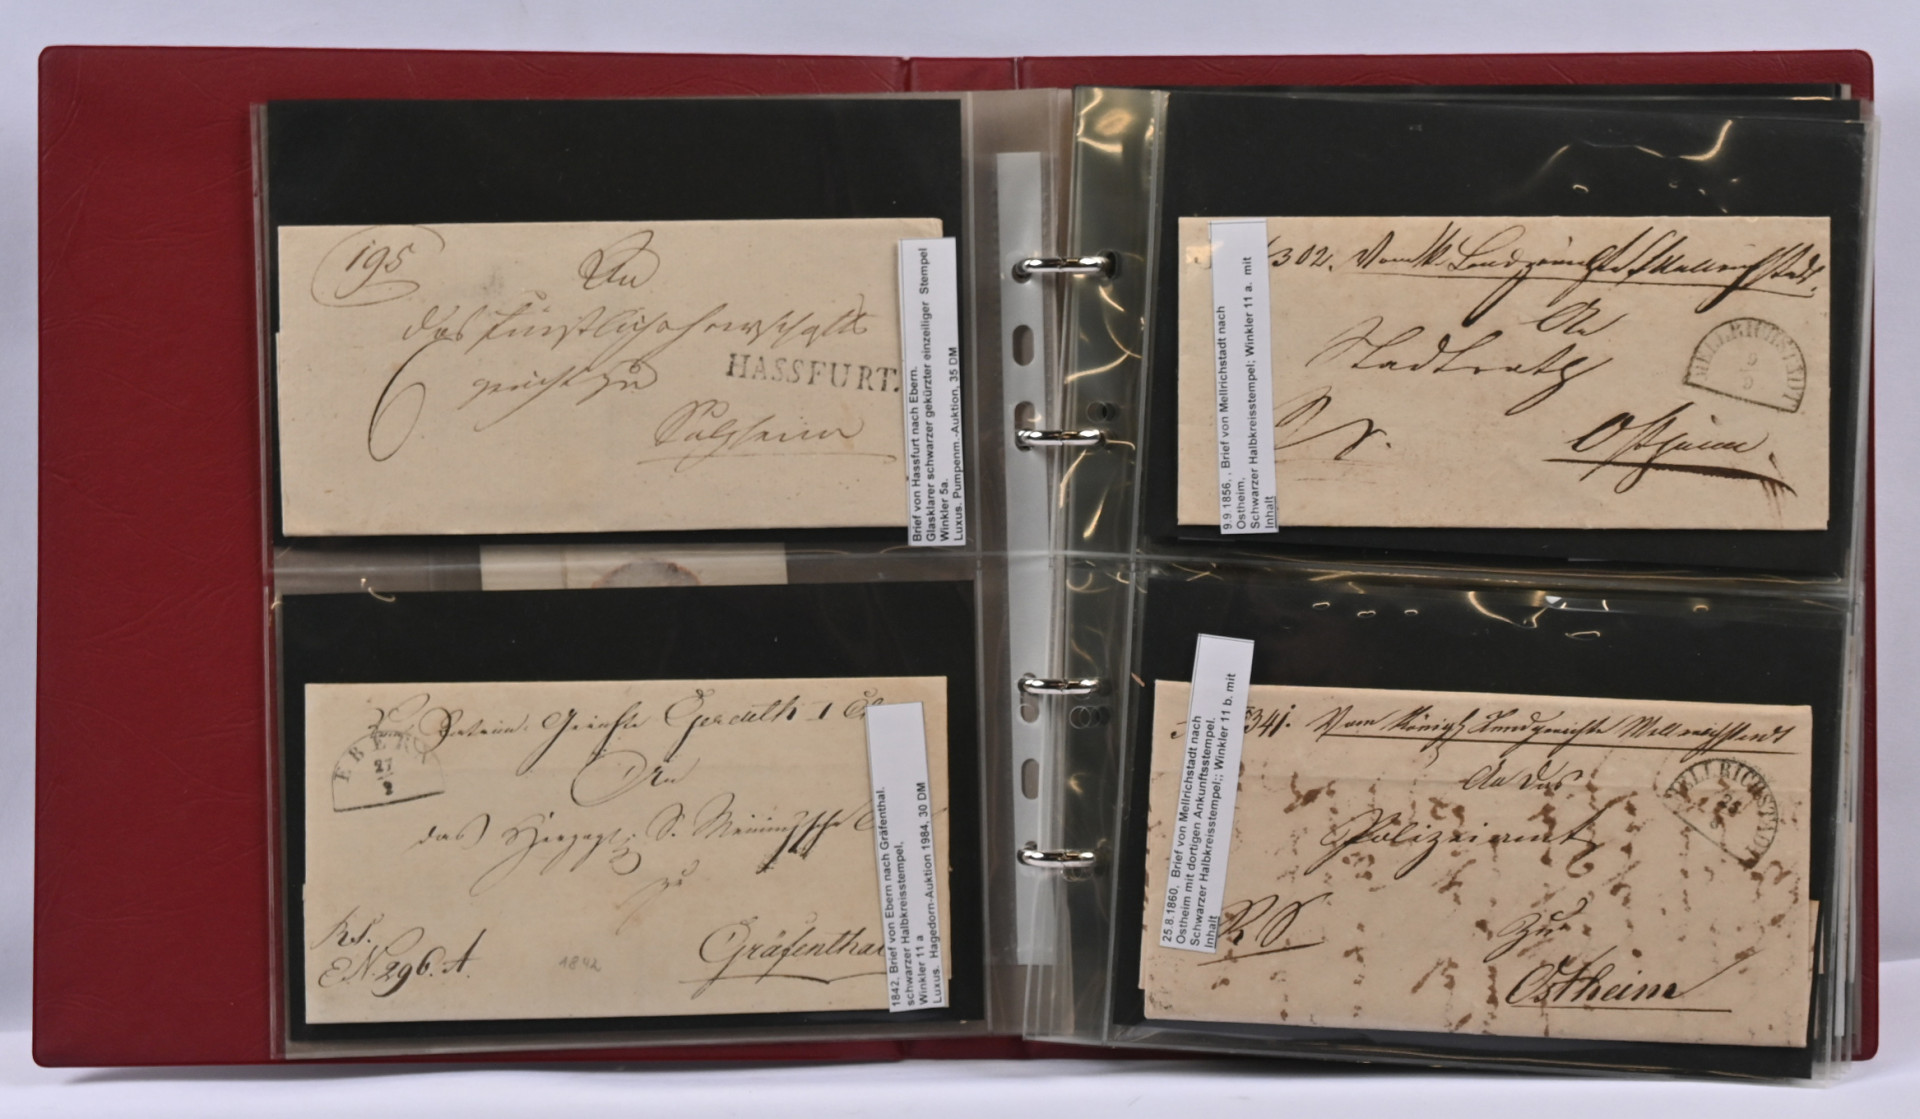 195
An
das
HASSFURT.
Sulzheim
6
Brief von Hassfurt nach Ebern.
Glasklarer schwarzer gekürzter einzeiliger Stempel
Winkler 5a.
Luxus. Pumpenm.-Auktion, 35 DM
EBERN
27
9
An
das Herzogl. S. Meiningsche
zu
Gräfenthal
R.S.
EN. 296. A.
1842
1842, Brief von Ebern nach Gräfenthal.
schwarzer Halbkreisstempel,
Winkler 11 a
Luxus. Hagedorn-Auktion 1984, 30 DM
302. Vom K. Landgerichte Mellrichstadt.
An
Stadtrath
Ostheim.
MELLRICHSTADT
9
9
9.9.1856, , Brief von Mellrichstadt nach
Ostheim,
Schwarzer Halbkreisstempel; Winkler 11 a. mit
Inhalt
341. Vom Königl. Landgerichte Mellrichstadt
An das
Polizeiamt
zu
Ostheim
R S
MELLRICHSTADT
25
25.8.1860, Brief von Mellrichstadt nach
Ostheim mit dortigen Ankunftsstempel.
Schwarzer Halbkreisstempel;; Winkler 11 b. mit
Inhalt